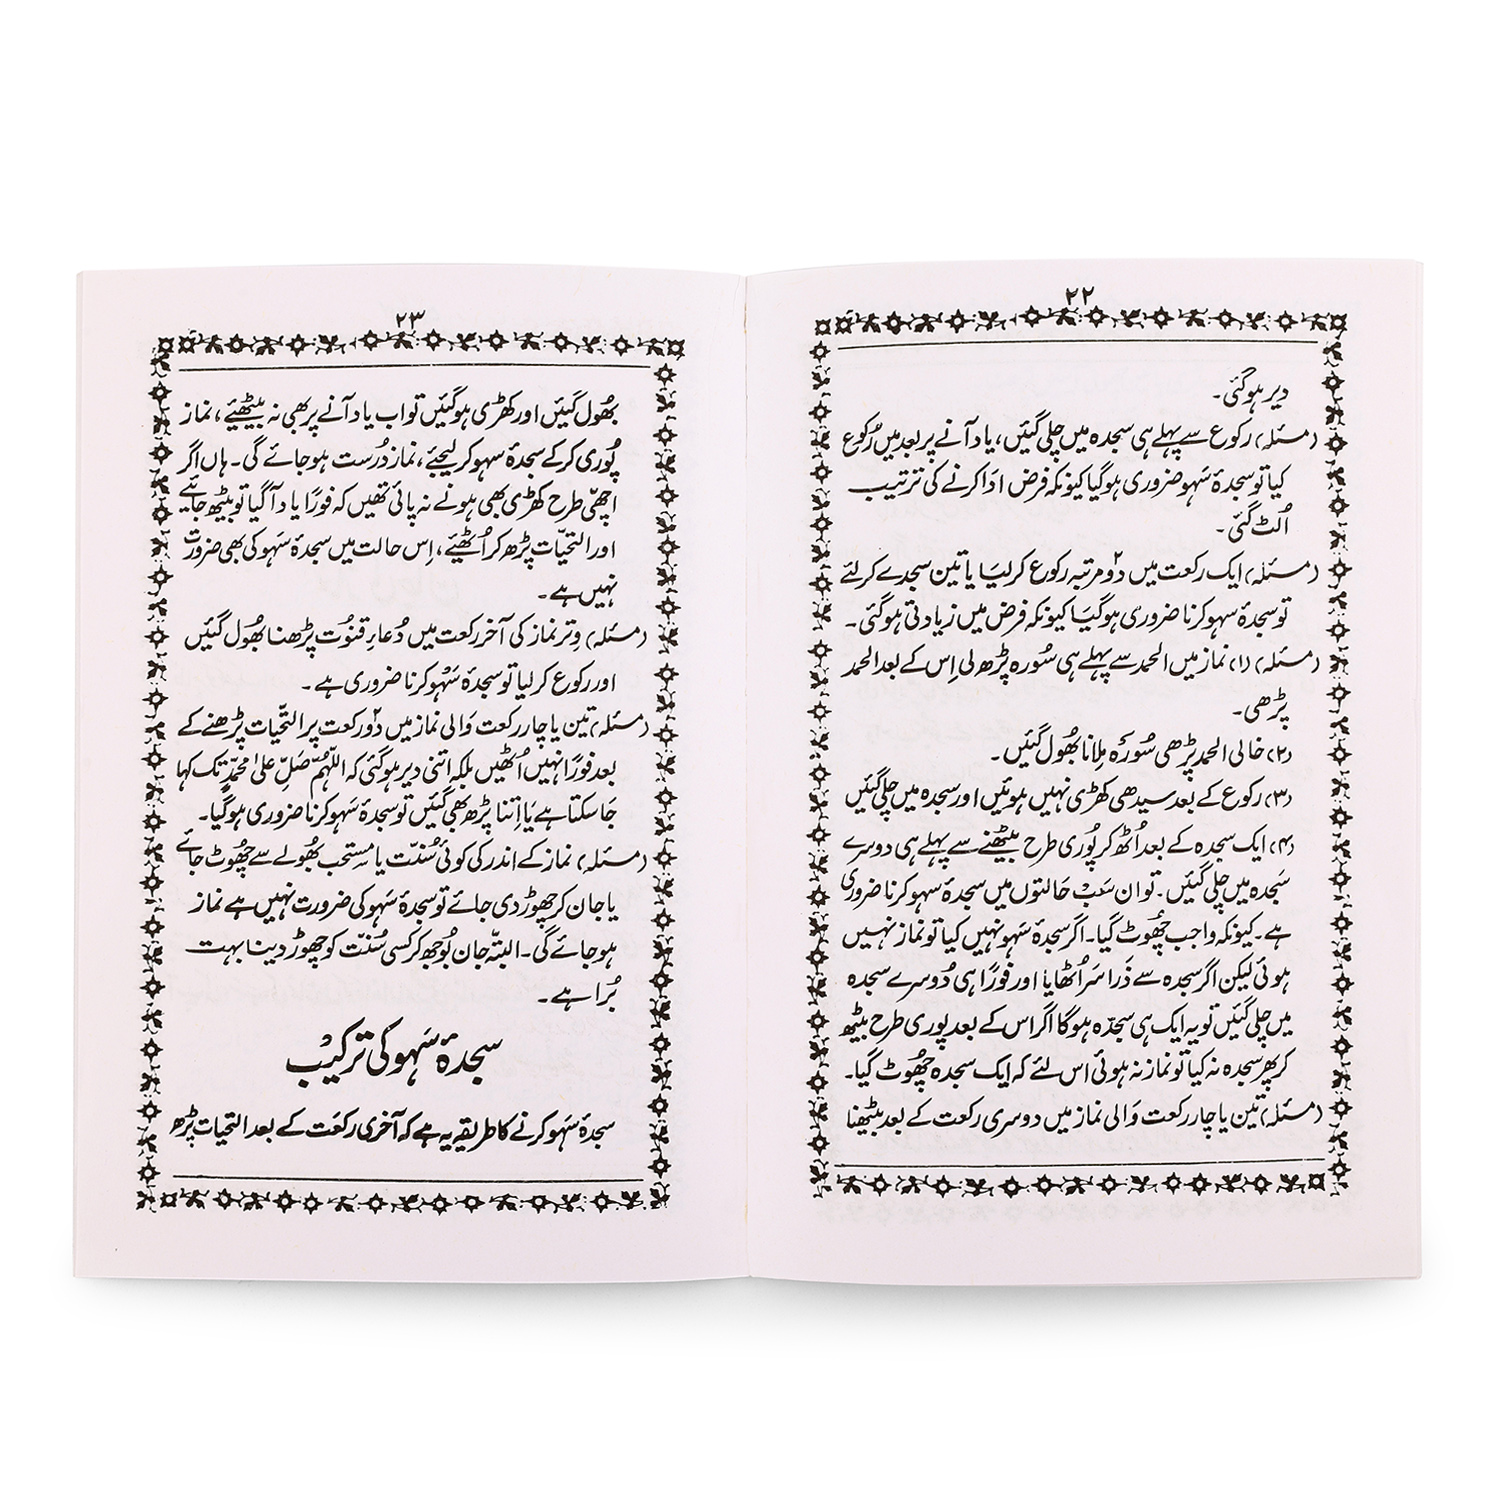 ۲۲
دیر ہوگئی۔
(مسئلہ) رکوع سے پہلے ہی سجدہ میں چلی گئیں، یاد آنے پر بعد میں رُکوع
کیا تو سجدۂ سَہو ضروری ہوگیا کیونکہ فرض ادا کرنے کی ترتیب
اُلٹ گئی۔
(مسئلہ) ایک رکعت میں دو۲ مرتبہ رکوع کرلیَا یا تین سجدے کرلئے
تو سجدۂ سہو کرنا ضروری ہوگیَا کیونکہ فرض میں زیادتی ہوگئی۔
(مسئلہ) (۱) نماز میں الحمد سے پہلے ہی سُورہ پڑھ لی اِس کے بعد الحمد
پڑھی۔
(۲) خالی الحمد پڑھی سُورہ مِلانا بھُول گئیں۔
(۳) رکوع کے بعد سیدھی کھڑی نہیں ہوئیں اور سجدہ میں چلی گئیں
(۴) ایک سجدہ کے بعد اُٹھ کر پُوری طرح بیٹھنے سے پہلے ہی دوسرے
سَجدہ میں چلی گئیں۔ تو ان سَبْ حَالتوں میں سجدۂ سہو کرنا ضروری
ہے۔ کیونکہ واجب چھُوٹ گیا۔ اگر سجدۂ سَہو نہیں کیا تو نماز نہیں
ہوئی لیکن اگر سجدہ سے ذَرا سَر اُٹھایا اور فورًا ہی دُوسرے سجدہ
میں چلی گئیں تو یہ ایک ہی سجدہ ہوگا اگر اس کے بعد پوری طرح بیٹھ
کر پھر سجدہ نہ کیا تو نماز نہ ہوئی اس لئے کہ ایک سجدہ چھُوٹ گیا۔
(مسئلہ) تین یا چار رکعت وَالی نماز میں دوسری رکعت کے بعد بیٹھنا
۲۳
بھُول گئیں اور کھڑی ہوگئیں تو اب یاد آنے پر بھی نہ بیٹھیئے، نماز
پُوری کرکے سجدۂ سہو کرلیجئے، نماز دُرست ہوجائے گی۔ ہاں اگر
اچھّی طرح کھڑی بھی ہونے نہ پائی تھیں کہ فورًا یاد آگیا تو بیٹھ جایئے
اور التحیّات پڑھ کر اُٹھیئے، اِس حالت میں سجدۂ سَہو کی بھی ضرورت
نہیں ہے۔
(مسئلہ) وِتر نماز کی آخر رکعت میں دُعاءِ قنوُت پڑھنا بھُول گئیں
اور رکوع کرلیا تو سجدۂ سَہْو کرنا ضروری ہے۔
(مسئلہ) تین یا چار رکعت وَالی نماز میں دو۲ رکعت پر التّحیات پڑھنے کے
بعد فورًا نہیں اُٹھیں بلکہ اتنی دیر ہوگئی کہ اللّٰہُمَّ صَلِّ عَلیٰ محمّدٍ تک کہا
جَاسکتا ہے یَا اِتنا پڑھ بھی گئیں تو سجدۂ سَہو کرنا ضروری ہوگیا۔
(مسئلہ) نماز کے اندر کی کوئی سُنّت یا مستحب بھُولے سے چھُوٹ جائے
یا جان کر چھوڑ دی جائے تو سجدۂ سَہو کی ضرورت نہیں ہے نماز
ہوجائے گی۔ البتّہ جان بُوجھ کر کسی سُنّت کو چھوڑ دینا بہت
بُرا ہے۔
سجدۂ سَہو کی ترکیبْ
سجدۂ سَہو کرنے کا طریقہ یہ ہے کہ آخری رکعَت کے بعد التحیات پڑھ